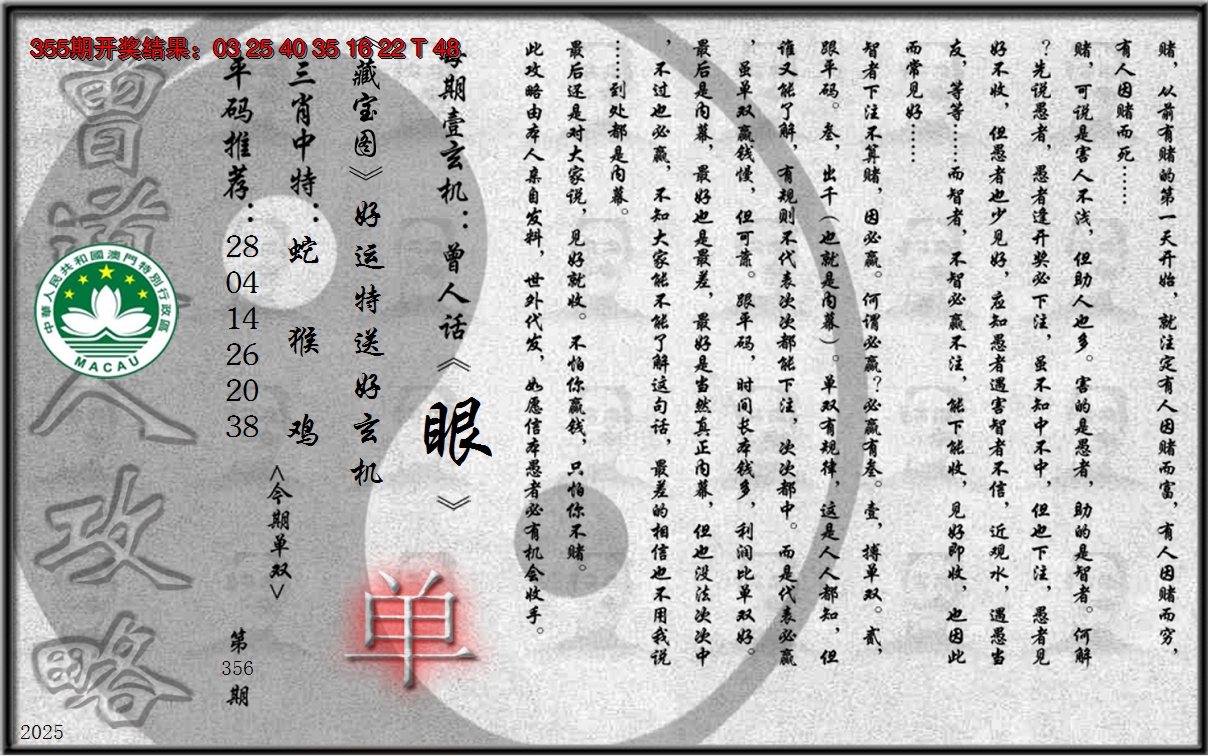 355期开奖结果：03 25 40 35 16 22 T 48
赌，从前有赌的第一天开始，就注定有人因赌而富，有人因赌而穷，
有人因赌而死……
赌，可说是害人不浅，但助人也多。害的是愚者，助的是智者。何解
？先说愚者，愚者逢开奖必下注，虽不知中不中，但也下注，愚者见
好不收，但愚者也少见好，应知愚者遇害智者不信，近观水，遇愚当
友，等等……而智者，不智必赢不注，能下能收，见好即收，也因此
而常见好……
智者下注不算赌，因必赢。何谓必赢？必赢有叁。壹，搏单双。贰，
跟平码。叁，出千（也就是内幕）。单双有规律，这是人人都知，但
谁又能了解，有规则不代表次次都能下注，次次都中。而是代表必赢
，虽单双赢钱慢，但可靠。跟平码，时间长本钱多，利润比单双好。
最后是内幕，最好也是最差，最好是当然真正内幕，但也没法次次中
，不过也必赢，不知大家能不能了解这句话，最差的相信也不用我说
……到处都是内幕。
最后还是对大家说，见好就收。不怕你赢钱，只怕你不赌。
此攻略由本人亲自发料，世外代发，如愿信本愚者必有机会收手。
每期壹玄机：曾人话《眼》
《藏宝图》好运特送好玄机
单
三肖中特：蛇 猴 鸡
<今期单双>
平码推荐：
28
04
14
26
20
38
第
356
期
曾道人攻略
中華人民共和國澳門特別行政區
MACAU
2025